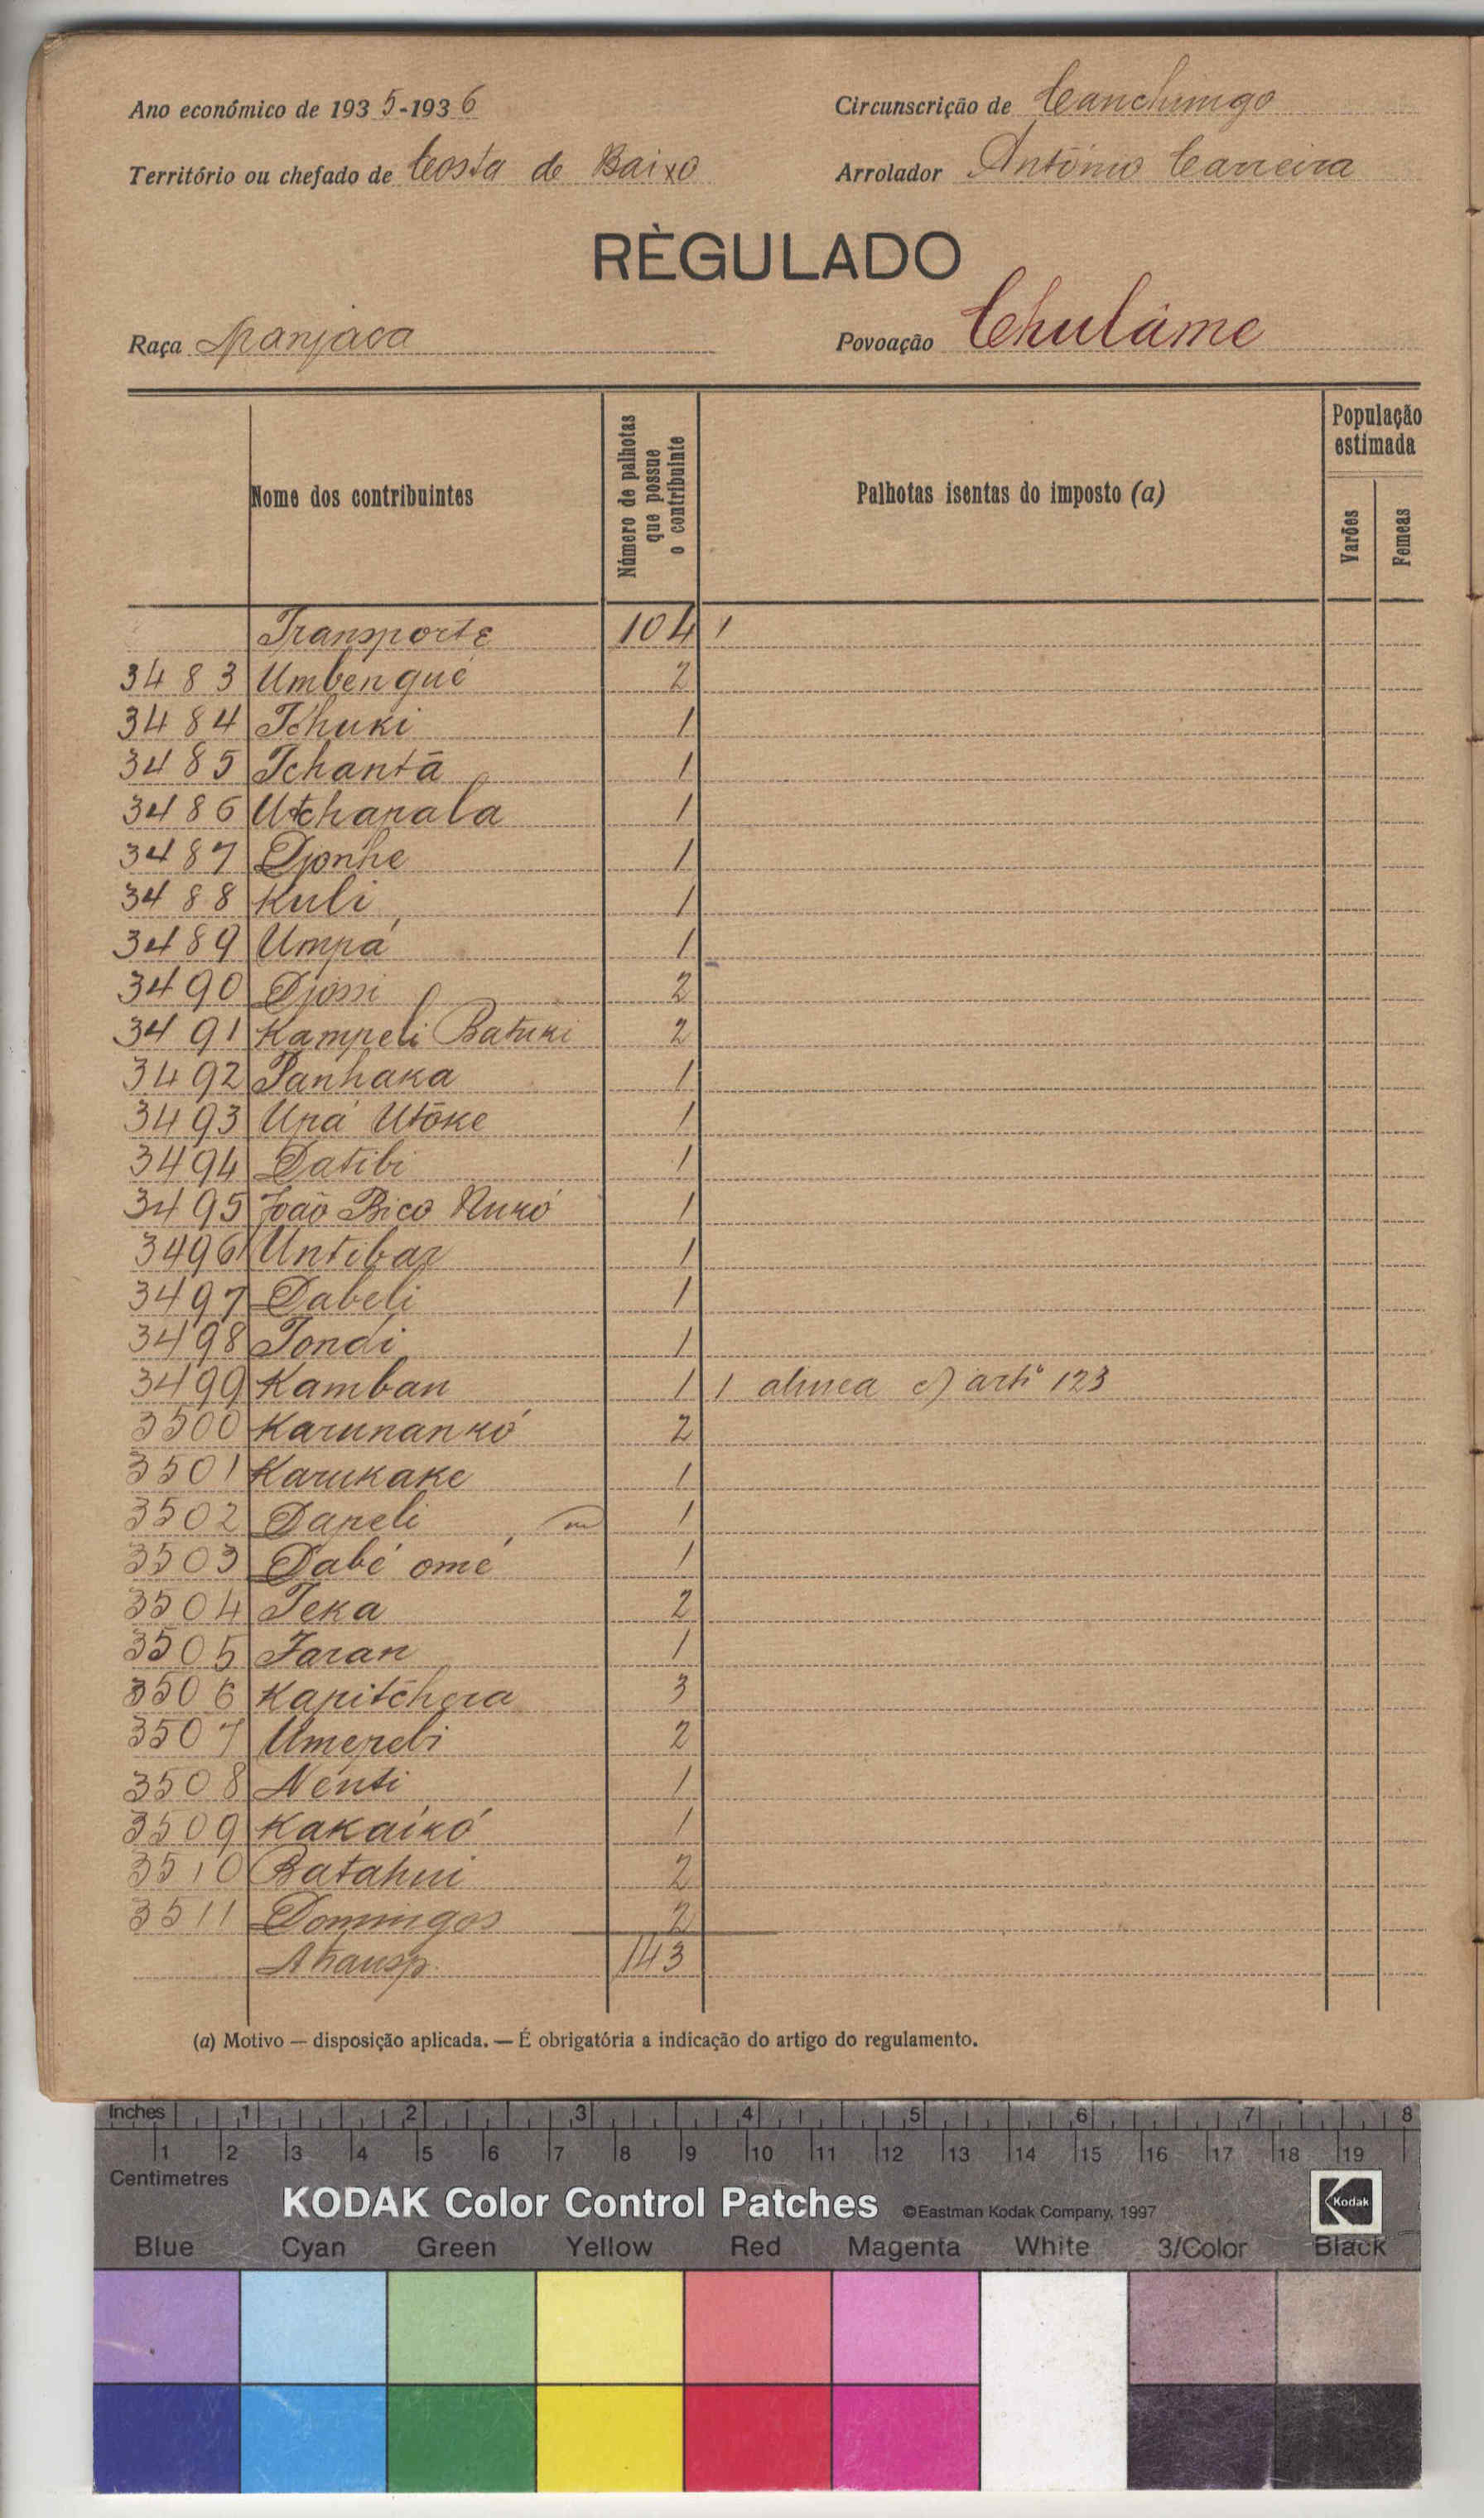 Ano económico de 1935-1936
Circunscrição de Canchungo
Território ou chefado de Costa de Baixo
Arrolador António Carreira
RÈGULADO
Raça Manjaca
Povoação Chulâme
Nome dos contribuintes
Número de palhotas que possue o contribuinte
Palhotas isentas do imposto (a)
População estimada
Varões
Femeas
Transporte 104 1
3483 Umbengué 2
3484 Tchuki 1
3485 Tchantã 1
3486 Utchapala 1
3487 Djonhe 1
3488 Kuli 1
3489 Umpá 1
3490 Djossi 2
3491 Kampeli Batuki 2
3492 Panhaka 1
3493 Upá Utōke 1
3494 Datibi 1
3495 João Bico Nukó 1
3496 Untibar 1
3497 Dabeli 1
3498 Tondi 1
3499 Kamban 1 1 alinea c) artº 123
3500 Karunankó 2
3501 Karukake 1
3502 Dapeli 1
3503 Dabé omé 1
3504 Teka 2
3505 Faran 1
3506 Kapitchera 3
3507 Umerebi 2
3508 Nenti 1
3509 Kakaikó 1
3510 Batahui 2
3511 Domingos 2
A transp. 143
(a) Motivo — disposição aplicada. — É obrigatória a indicação do artigo do regulamento.
Inches 1 2 3 4 5 6 7 8
1 2 3 4 5 6 7 8 9 10 11 12 13 14 15 16 17 18 19
Centimetres
KODAK Color Control Patches ©Eastman Kodak Company, 1997 Kodak
Blue Cyan Green Yellow Red Magenta White 3/Color Black